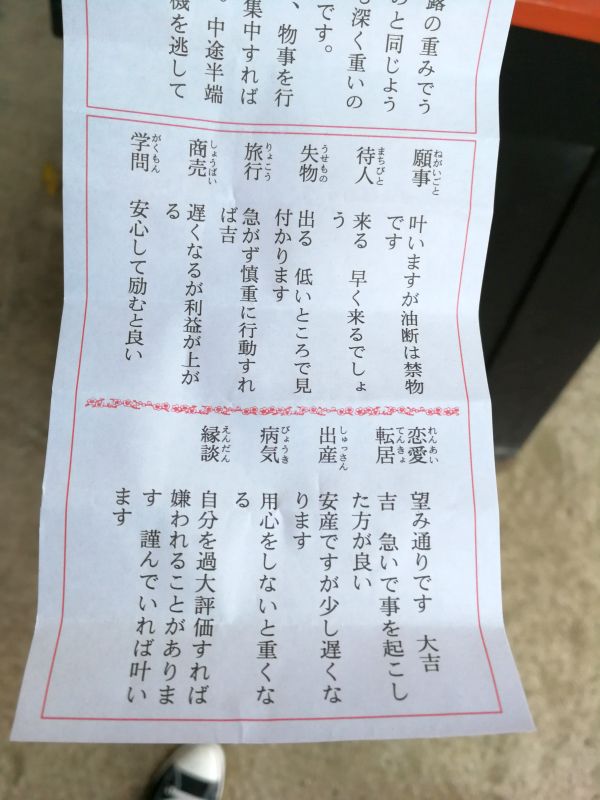 露の重みでう
のと同じよう
も深く重いの
です。
、物事を行
集中すれば
。中途半端
機を逃して
願事 ねがいごと
叶いますが油断は禁物
です
待人 まちびと
来る 早く来るでしょ
う
失物 うせもの
出る 低いところで見
付かります
旅行 りょこう
急がず慎重に行動すれ
ば吉
商売 しょうばい
遅くなるが利益が上が
る
学問 がくもん
安心して励むと良い
恋愛 れんあい
望み通りです 大吉
転居 てんきょ
吉 急いで事を起こし
た方が良い
出産 しゅっさん
安産ですが少し遅くな
ります
病気 びょうき
用心をしないと重くな
る
縁談 えんだん
自分を過大評価すれば
嫌われることがありま
す 謹んでいれば叶い
ます